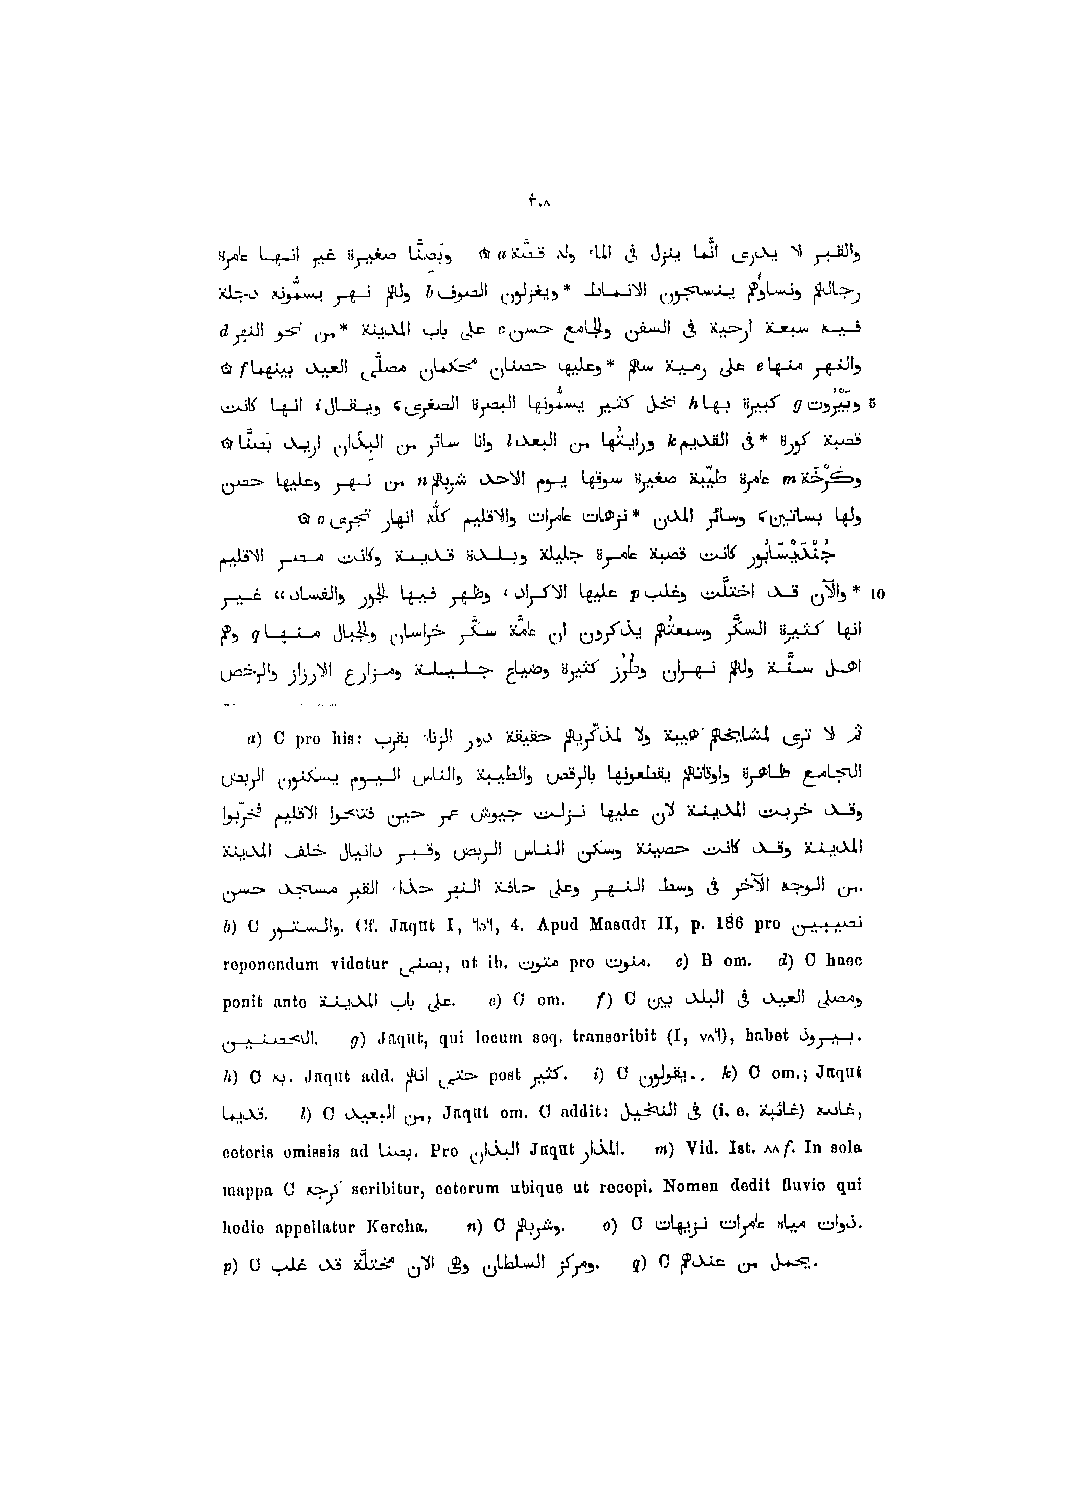 ٤٠٨
والقبر لا يدرى انّما ينزل فى الماء وله قصّة a ۞ وبَصِنَّا صغيرة غير انـهـا عامرة
رجالهم ونساؤهم ينسجون الانماط *ويغزلون الصوف b ولهم نهر يسمّونه دجلة
فيه سبعة ارحية فى السفن والجامع حسن c على باب المدينة *من نحو النهر d
والنهر منها e على رمية سهم *وعليها حصنان محكمان مصلَّى العيد بينهما f ۞
5 وبَيْرُوت g كبيرة بها h نخل كثير يسمُّونها البصرة الصغرى c ويقال i انها كانت
قصبة كورة *فى القديم k ورايتُها من البعد l وانا سائر من البِذَان اريد بَصِنَّا ۞
وكَرْخَة m عامرة طيّبة صغيرة سوقها يوم الاحد شربهم n من نهر وعليها حصن
ولها بساتين c وسائر المدن *نزهات عامرات والاقليم كلّه انهار تجرى o ۞
جُنْدَيْسَابُور كانت قصبة عامرة جليلة وبلدة قديمة وكانت مصر الاقليم
10 *والآن قد اختلّت وغلب p عليها الاكراد، وظهر فيها الجور والفساد، غير
انها كثيرة السكّر وسمعتُهم يذكرون ان عامّة سكّر خراسان والجبال منها q وهم
اهل سنّة ولهم نهران وطُرُز كثيرة وضياع جليلة ومزارع الارزاز والرخص
a) C pro his: ثم لا ترى لمشايخهم هيبة ولا لمذكّريهم حقيقة دور الزناء بقرب
الجامع ظاهرة واوقاتهم يقطعونها بالرقص والطيبة والناس اليوم يسكنون الربض
وقد خربت المدينة لان عليها نزلت جيوش عمر حين فتحوا الاقليم فخرّبوا
المدينة وقد كانت حصينة وسكن الناس الربض وقبر دانيال خلف المدينة
من الوجه الآخر فى وسط النهر وعلى حافة النهر حذاء القبر مسجد حسن.
b) C والستور. Cf. Jaqut I, ٦٥٦, 4. Apud Masudi II, p. 186 pro نصيبين
reponendum videtur بصنى, ut ib. متوت pro منوت. c) B om. d) C haec
ponit ante على باب المدينة. e) C om. f) C ومصلى العيد فى البلد بين
الحصنين. g) Jaqut, qui locum seq. transcribit (I, ٧٨٦), habet بيروذ.
h) C به. Jaqut add. حتى انهم post كثير. i) C يقولون. k) C om.; Jaqut
قديما. l) C من البعيد, Jaqut om. C addit: فى النخيل (i. e. غائبة) غايبه,
ceteris omissis ad بصنا. Pro البذان Jaqut المذار. m) Vid. Ist. ٨٨ f. In sola
mappa C كرجه scribitur, ceterum ubique ut recepi. Nomen dedit fluvio qui
hodie appellatur Kercha. n) C وشربهم. o) C ذوات مياه عامرات نزيهات.
p) C ومركز السلطان وهى الان مختلّة قد غلب. q) C يحمل من عندهم.